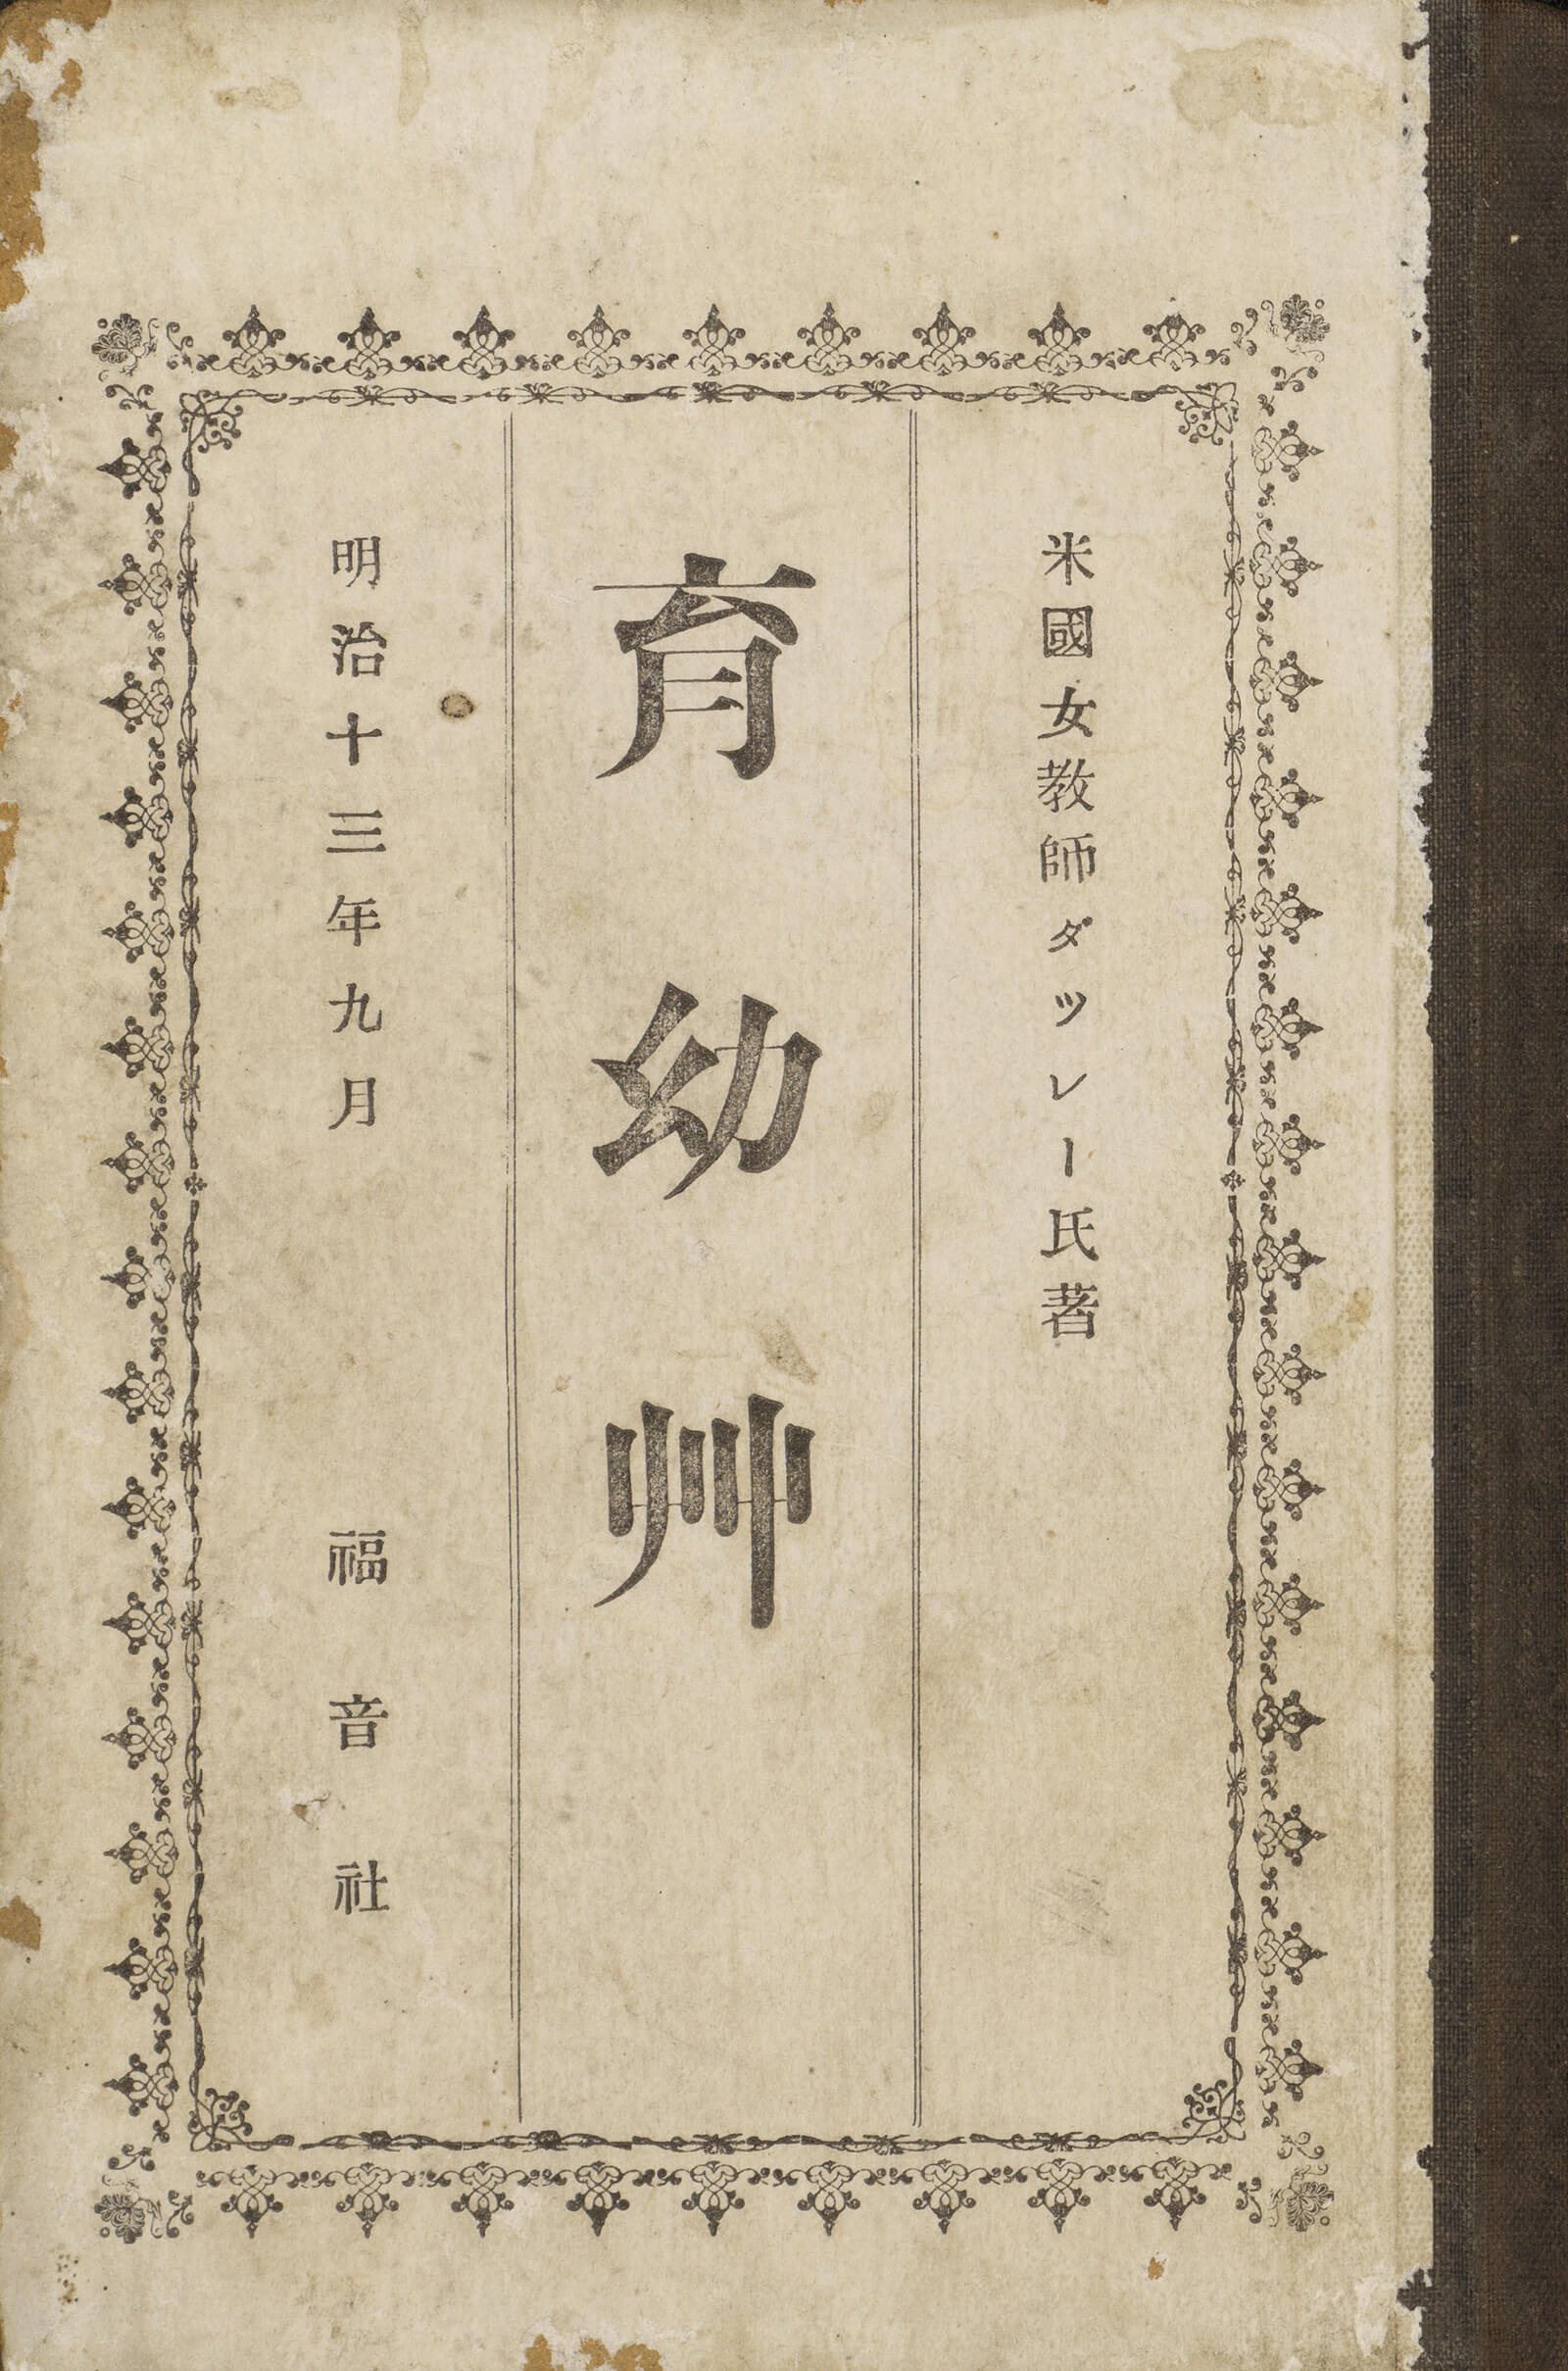 米國女教師ダツレー氏著
育幼艸
明治十三年九月
福音社